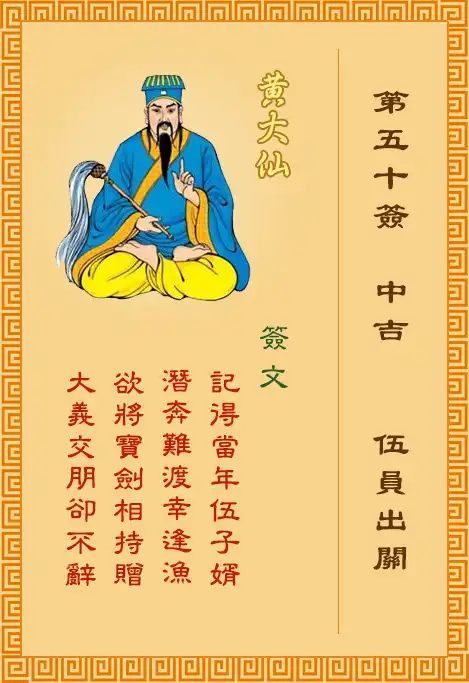 第五十簽 中吉 伍員出關
黃大仙
簽文
記得當年伍子婿
潛奔難渡幸逢漁
欲將寶劍相持贈
大義交朋卻不辭